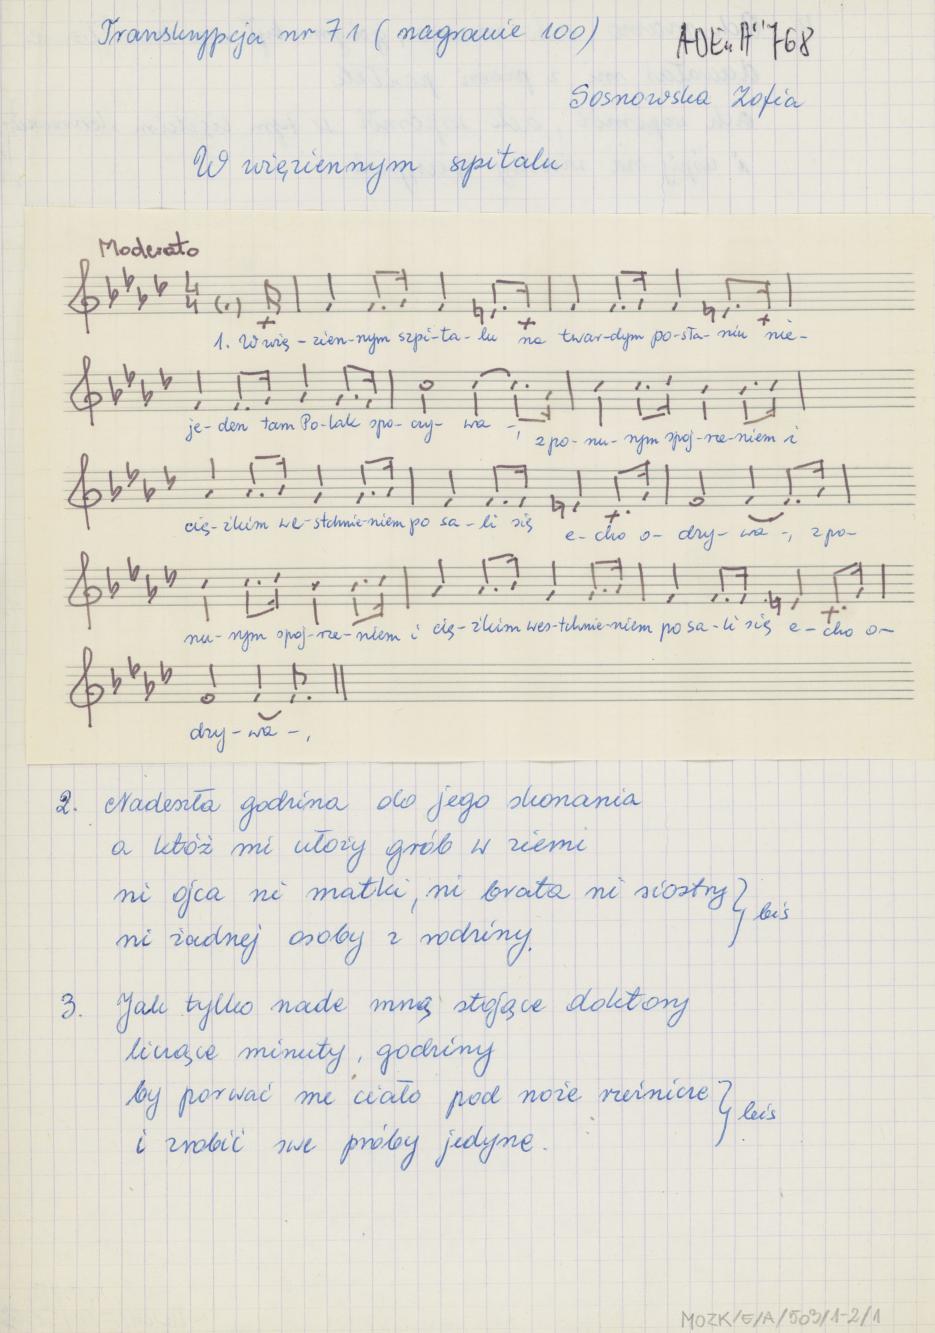 Transkrypcja nr 71 ( nagranie 100)
ADEiA" 768
Sosnowska Zofia
W więziennym szpitalu
Moderato
1. W wię - zien-nym szpi-ta-lu na twar-dym po-sła-niu nie-
je-den tam Po-lak spo-czy-wa -, z po-nu-rym spoj-rze-niem i
cię-żkim we-stchnie-niem po sa-li się e-cho o- dzy-wa -, z po-
nu-rym spoj-rze-niem i cię-żkim wes-tchnie-niem po sa-li się e-cho o-
dzy-wa -,
2. Nadeszła godzina do jego skonania
a któż mi ułoży grób w ziemi
ni ojca ni matki, ni brata ni siostry } bis
ni żadnej osoby z rodziny.
3. Jak tylko nade mną stojące doktory
liczące minuty, godziny
by porwać me ciało pod noże rzeźnicze } bis
i zrobić swe próby jedynę.
MOZK/E/A/503/1-2/1